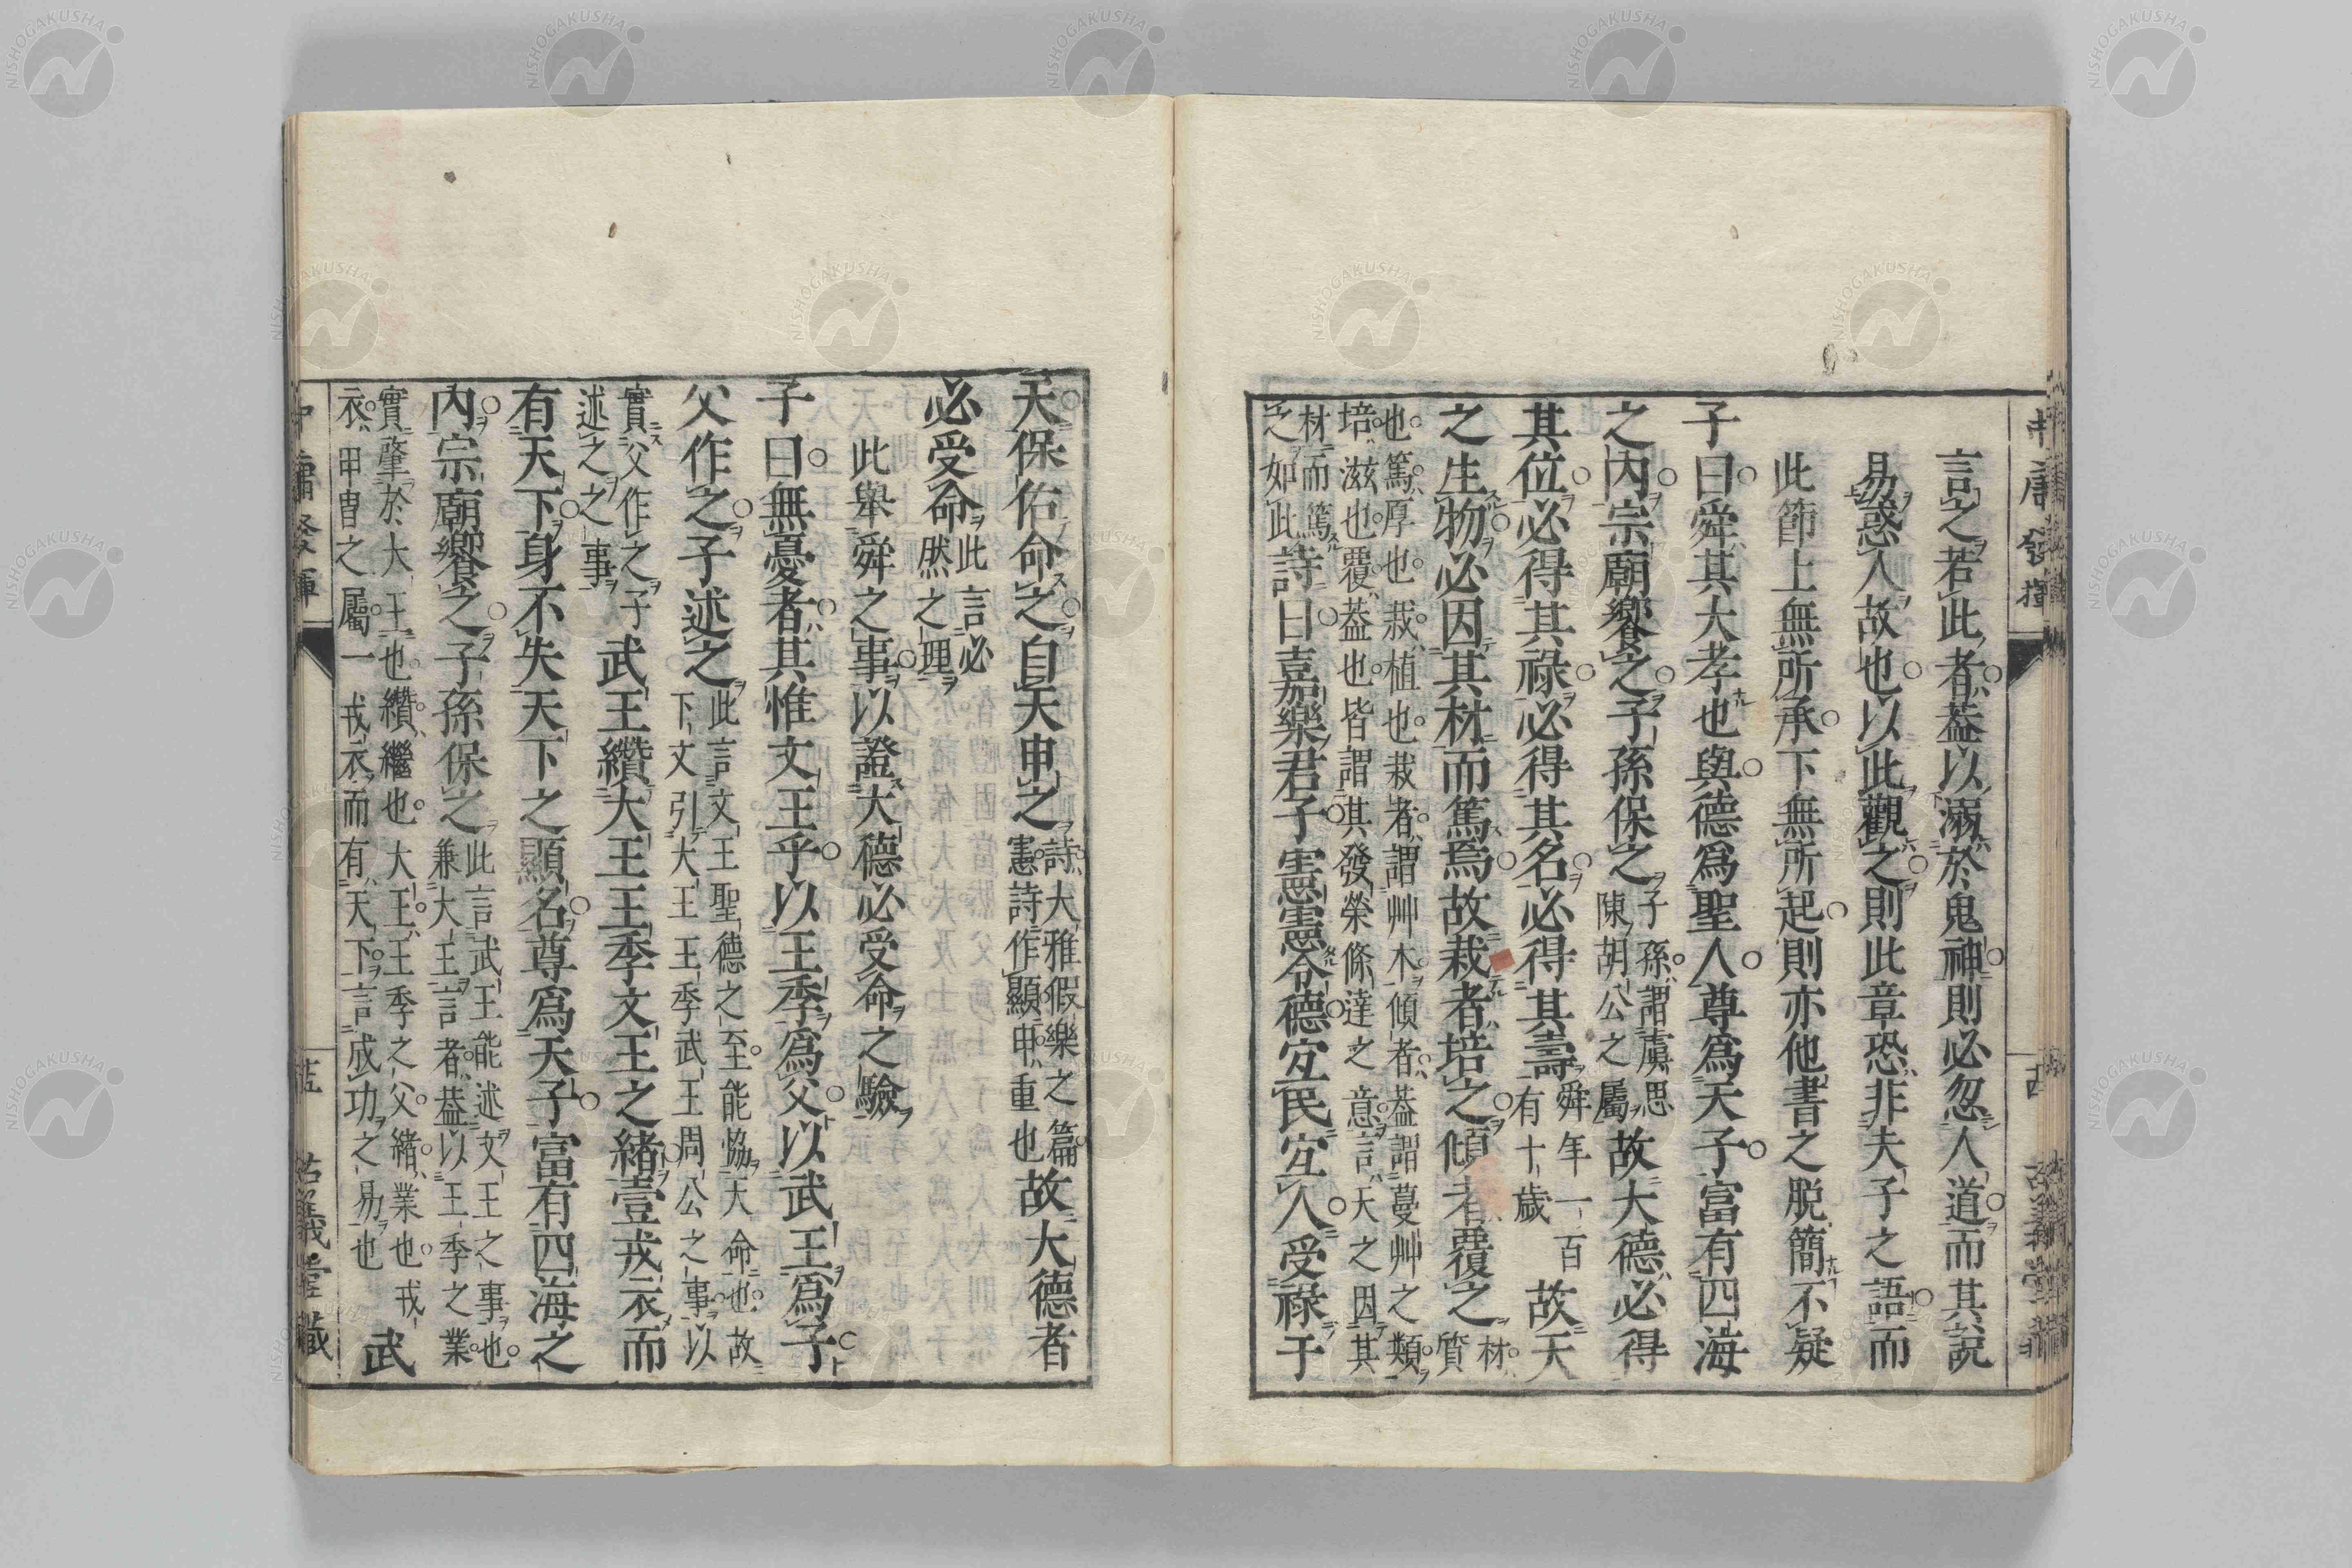 言之若此者蓋以溺於鬼神則必忽人道而其説
易惑人故也以此觀之則此章恐非夫子之語而
此節上無所承下無所起則亦他書之脱簡不疑
子曰舜其大孝也與德爲聖人尊爲天子富有四海
之内宗廟饗之子孫保之子孫謂虞思陳胡公之屬故大德必得
其位必得其祿必得其名必得其壽舜年一百有十歳故天
之生物必因其材而篤焉故栽者培之傾者覆之材質
也篤厚也栽植也栽者謂艸木傾者蓋謂蔓艸之類
培滋也覆蓋也皆謂其發榮條達之意言天之因其
材而篤之如此詩曰嘉樂君子憲憲令德宜民宜人受祿于
天保佑命之自天申之詩大雅假樂之篇憲詩作顯申重也故大德者
必受命此言必然之理
此舉舜之事以證大德必受命之驗
子曰無憂者其惟文王乎以王季爲父以武王爲子
父作之子述之此言文王聖德之至能恊大命也故下文引大王王季武王周公之事以
實父作之子述之之事武王纘大王王季文王之緒壹戎衣而
有天下身不失天下之顯名尊爲天子富有四海之
内宗廟饗之子孫保之此言武王能述文王之事也兼大王言者蓋以王季之業
實肇於大王也纘繼也大王王季之父緒業也戎
衣甲冑之屬一戎衣而有天下言成功之易也武
中庸發揮
十四
古義堂藏
NISHOGAKUSHA